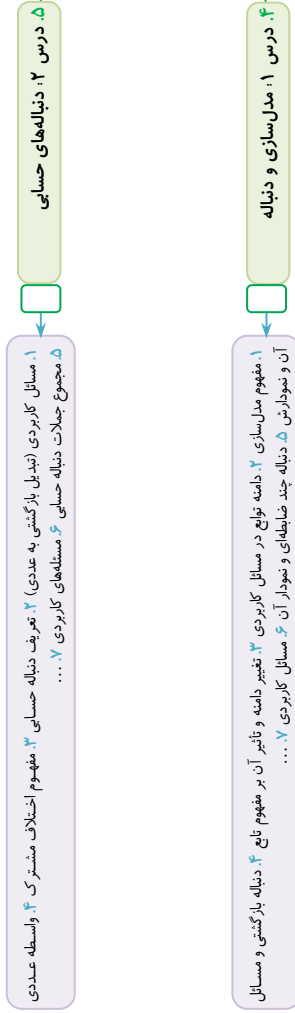 ۴. درس ۱: مدل‌سازی و دنباله
۱. مفهوم مدل‌سازی ۲. دامنه توابع در مسائل کاربردی ۳. تغییر دامنه و تاثیر آن بر مفهوم تابع ۴. دنباله بازگشتی و مسائل
آن و نمودارش ۵. دنباله چند ضابطه‌ای و نمودار آن ۶. مسائل کاربردی ۷. ...
۵. درس ۲: دنباله‌های حسابی
۱. مسائل کاربردی (تبدیل بازگشتی به عددی) ۲. تعریف دنباله حسابی ۳. مفهوم اختلاف مشترک ۴. واسطه عددی
۵. مجموع جملات دنباله حسابی ۶. مسئله‌های کاربردی ۷. ...